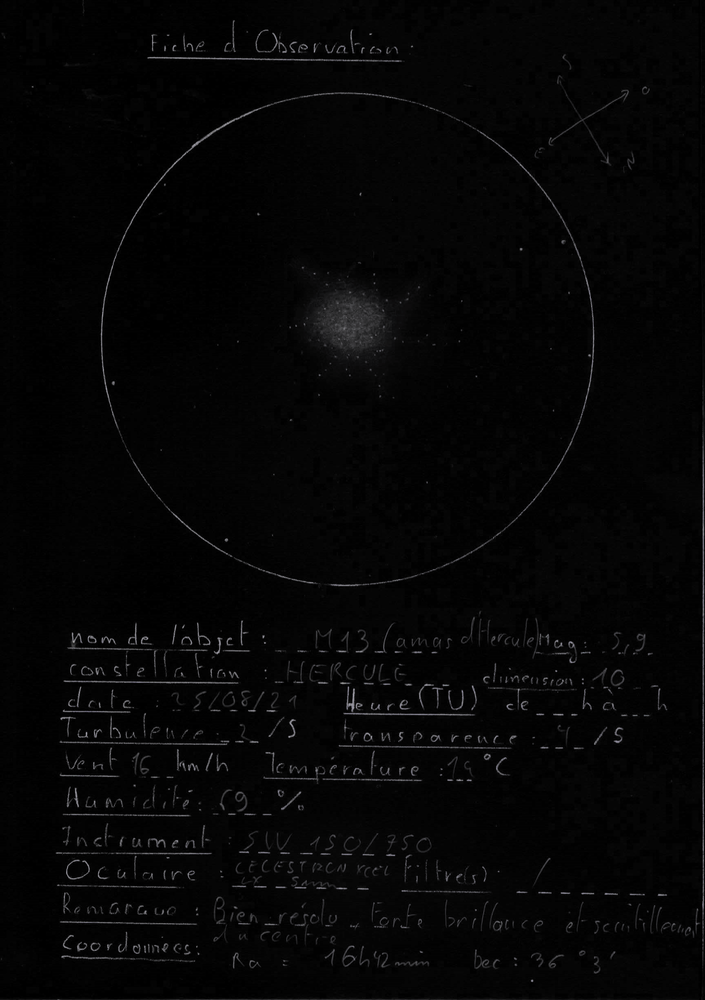 Fiche d'Observation
S
O
E
N
nom de l'objet : M13 (amas d'Hercule) Mag : 5,9
constellation : HERCULE dimension : 10
date : 25/08/21 Heure (TU) de ___ h à ___ h
Turbulence : 2 /5 transparence : 4 /5
Vent 16 km/h Température : °C
Humidité : 69 %
Instrument : SW 150/750
Oculaire : CELESTRON 5mm filtre(s) : /
Remarque : Bien résolu, forte brillance et scintillement
au centre
Coordonnées : Ra = 16h42min Dec : 36°3'